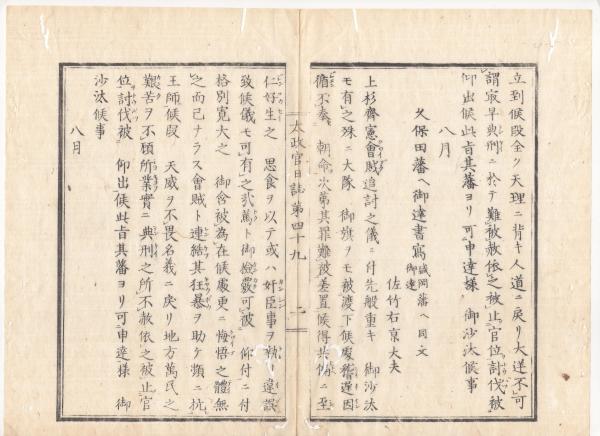 立到候段全ク天理ニ背キ人道ニ戾リ大逆不可
謂最早典刑ニ於テ難被赦依之被止官位討伐被
仰出候此旨其藩ヨリ可申達様 御沙汰候事
八月
久保田藩ヘ御達書寫 盛岡藩ヘ同文御達
佐竹右京大夫
上杉齊憲會賊追討之儀ニ付先般重キ 御沙汰
モ有之殊ニ大隊 御旗ヲモ被渡下候處稽遅因
循不奉 朝命次第其罪難被差置候得共係ニ至
太政官日誌第四十九 二
仁好生之 思食ヲ以テ或ハ奸臣事ヲ執リ違誤
致候儀モ可有之哉篤ト御撿覈可被 仰付ニ付
格別寛大之 御含被為在候處更ニ悔悟之體無
之而已ナラス會賊ト連結其狂暴ヲ助ケ頻ニ抗
王師候段 天威ヲ不畏名義ニ戻リ地方萬民之
艱苦ヲ不顧所業實ニ典刑之所不赦依之被止官
位討伐被 仰出候此旨其藩ヨリ可申達様 御
沙汰候事
八月